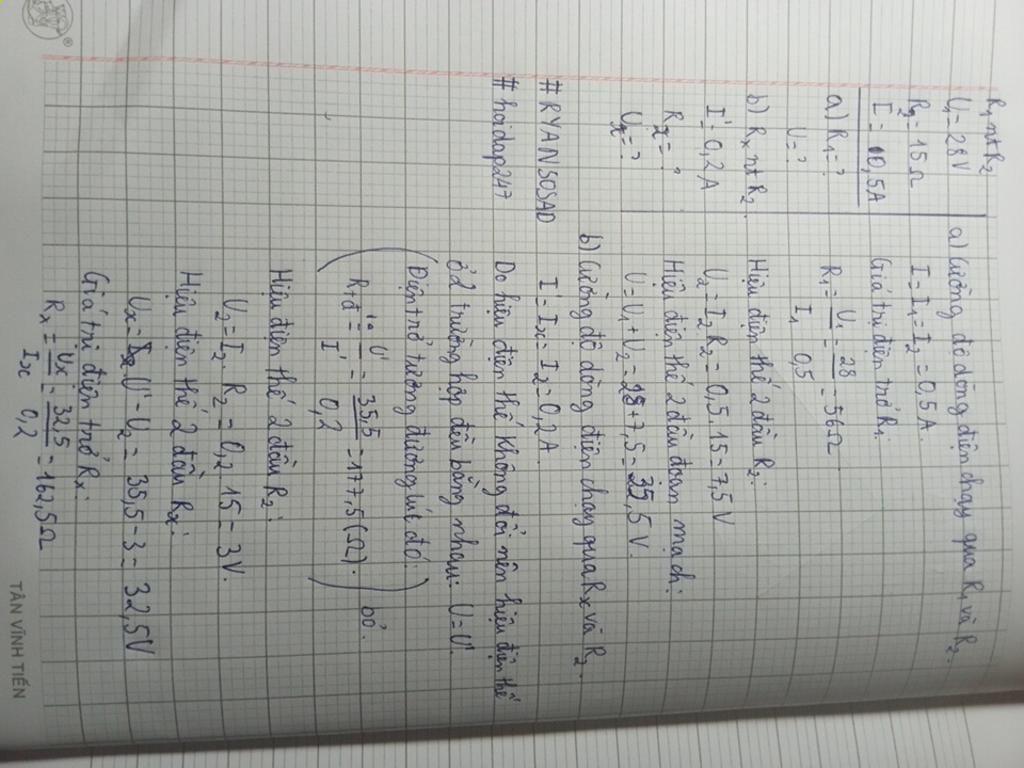 R₁ nt R₂
U₁ = 28V
R₂ = 15Ω
I = 0,5A
a) R₁ = ?
U = ?
b) Rₓ nt R₂
I' = 0,2A
Rₓ = ?
Uₓ = ?
#RYAN50SAD
#hoidap247
a) Cường độ dòng điện chạy qua R₁ và R₂.
I = I₁ = I₂ = 0,5A.
Giá trị điện trở R₁:
R₁ = U₁/I₁ = 28/0,5 = 56Ω
Hiệu điện thế 2 đầu R₂:
U₂ = I₂.R₂ = 0,5.15 = 7,5V
Hiệu điện thế 2 đầu đoạn mạch:
U = U₁ + U₂ = 28 + 7,5 = 35,5V.
b) Cường độ dòng điện chạy qua Rₓ và R₂.
I' = Iₓ = I₂ = 0,2A.
Do hiệu điện thế không đổi nên hiệu điện thế
ở 2 trường hợp đều bằng nhau: U = U'.
(Điện trở tương đương lúc đó:
Rtđ = U'/I' = 35,5/0,2 = 177,5(Ω).) bỏ.
Hiệu điện thế 2 đầu R₂:
U₂ = I₂.R₂ = 0,2.15 = 3V.
Hiệu điện thế 2 đầu Rₓ:
Uₓ = U' - U₂ = 35,5 - 3 = 32,5V
Giá trị điện trở Rₓ:
Rₓ = Uₓ/Iₓ = 32,5/0,2 = 162,5Ω
TÂN VĨNH TIẾN